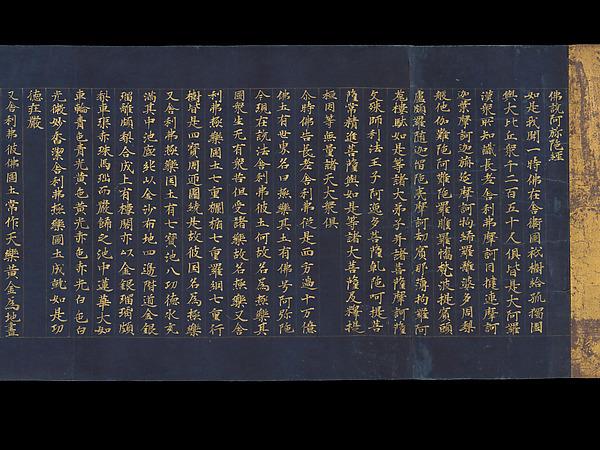 佛說阿弥陁經
如是我聞一時佛在舍衛國祇樹給孤獨園
與大比丘衆千二百五十人俱皆是大阿羅
漢衆所知識長老舍利弗摩訶目揵連摩訶
迦葉摩訶迦旃延摩訶拘絺羅離婆多周梨
槃他伽難陁阿難陁羅睺羅憍梵波提賓頭
盧頗羅墮迦留陁夷摩訶劫賓那薄拘羅阿
㝹樓馱如是等諸大弟子并諸菩薩摩訶薩
文殊師利法王子阿逸多菩薩乾陁呵提菩
薩常精進菩薩與如是等諸大菩薩及釋提
桓因等無量諸天大衆俱
尒時佛告長老舍利弗從是西方過十万億
佛土有世界名曰極樂其土有佛号阿弥陁
今現在說法舍利弗彼土何故名為極樂其
國衆生无有衆苦但受諸樂故名極樂又舍
利弗極樂國土七重欄楯七重羅網七重行
樹皆是四寶周迊圍繞是故彼國名為極樂
又舍利弗極樂國土有七寶池八功德水充
滿其中池底純以金沙布地四邊階道金銀
瑠離頗梨合成上有樓閣亦以金銀瑠璃頗
梨車璩赤珠馬瑙而嚴餝之池中蓮華大如
車輪青色青光黃色黃光赤色赤光白色白
光微妙香潔舍利弗極樂國土成就如是功
德莊嚴
又舍利弗彼佛國土常作天樂黃金為地晝